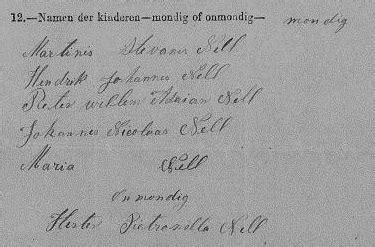 12.—Namen der kinderen—mondig of onmondig— mondig
Martinis Stevanes Nell
Hendrik Johannes Nell
Pieter willem Adrian Nell
Johannes Nicolaas Nell
Maria Nell
Onmondig
Hester Pietronella Nell